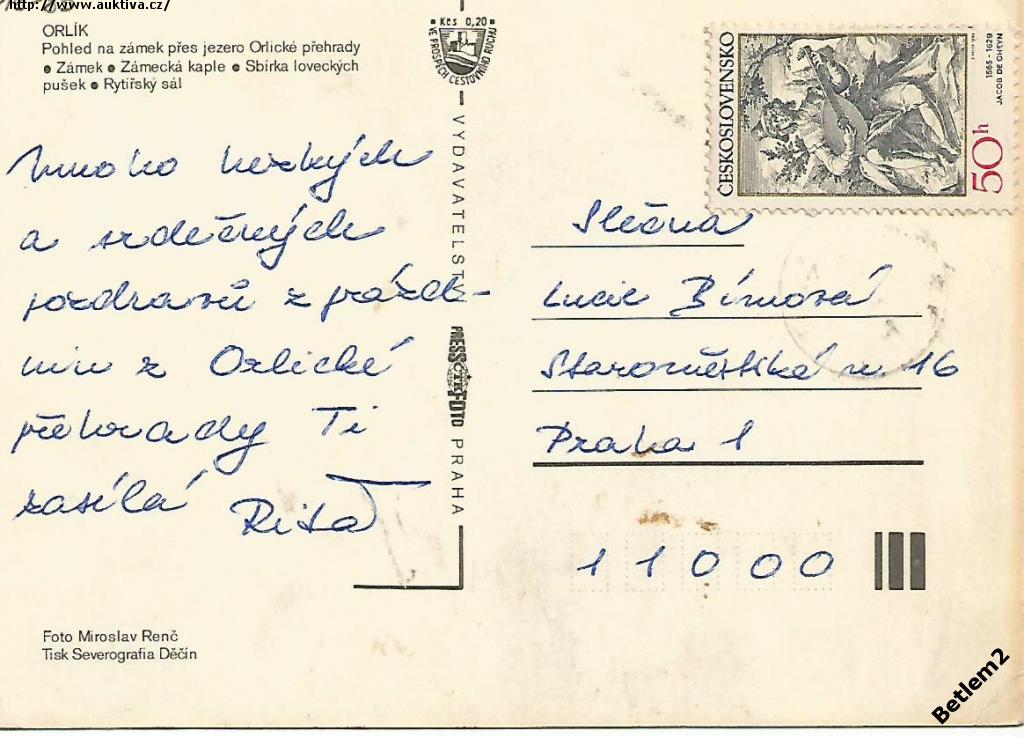 http://www.auktiva.cz/
ORLÍK
Pohled na zámek přes jezero Orlické přehrady
• Zámek • Zámecká kaple • Sbírka loveckých
pušek • Rytířský sál
Mnoho hezkých
a srdečných
pozdravů z prázd-
nin z Orlické
přehrady Ti
zasílá Rita
Foto Miroslav Renč
Tisk Severografia Děčín
Kčs 0,20
VE PROSPĚCH CESTOVNÍHO RUCHU
VYDAVATELSTVÍ
PRESSFOTO
ČTK
PRAHA
ČESKOSLOVENSKO
1565 - 1629
JACOB DE GHEYN
50h
Slečna
Lucie Bímová
Staroměstské n 16
Praha 1
11000
Betlem2